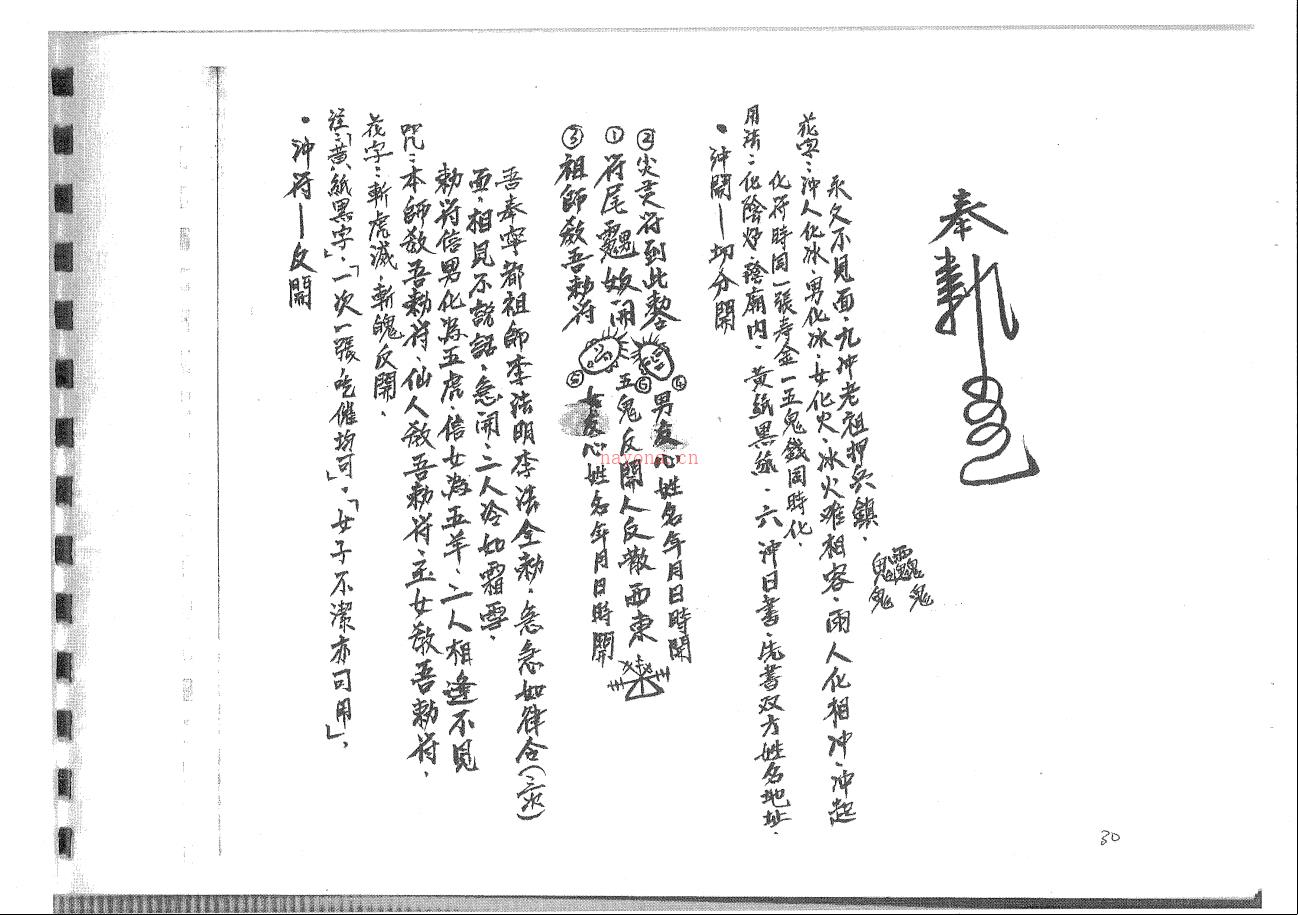 奉勅
鬼鬼鬼
永久不見面、九沖老祖押兵鎮、
花字：沖人化冰、男化冰、女化火、冰火难相容、雨人化相沖、沖起
化符時同一張寿金一五鬼錢同時化、
用法：化陰炉、陰廟内、黄紙黒紙、六沖日書、先書双方姓名地址、
•沖開—切分開
④男友心姓名年月日時開
②尖灵符到此
⑥五鬼反開人反散西東
①符尾妖開
⑤女友心姓名年月日時開
③祖師敎吾勅符
吾奉寧都祖師李法明李法全勅、急急如律令(三次)
面、相見不說話、急開、二人冷如霜雪、
勅符信男化為五虎、信女為五羊、二人相逢不見
咒：本師敎吾勅符、仙人敎吾勅符、玉女敎吾勅符、
花字：斬虎滅、斬魄反開、
注：「黄紙黒字」、「一次一張吃催均可」、「女子不潔亦可用」、
•沖符—反開
nayona.cn
30